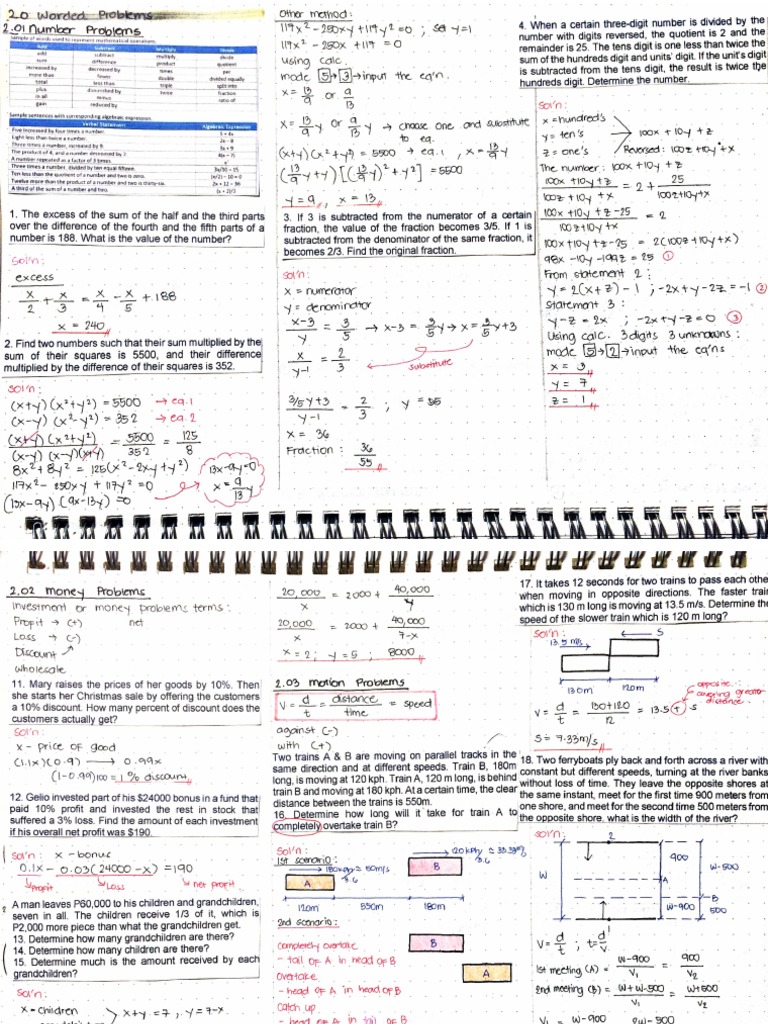 2.0 Worded Problems
2.01 Number Problems
Sample of words used to represent mathematical operations.
Add Subtract Multiply Divide
add subtract multiply divide
sum difference product quotient
increased by decreased by times per
more than fewer double divided equally
total less than triple split into
plus diminished by twice fraction
in all minus ratio of
gain reduced by
Sample sentences with corresponding algebraic expression.
Verbal Statement Algebraic Expression
Five increased by four times a number.
Eight less than twice a number. 2x – 8
Three times a number, increased by 9. 3x + 9
The product of 4, and a number decreased by 7. 4(x – 7)
A number repeated as a factor of 3 times.
Three times a number, divided by ten equal fifteen. 3x/10 = 15
Ten less than the quotient of a number and two is zero. (x/2) – 10 = 0
Twelve more than the product of a number and two is thirty-six. 2x + 12 = 36
A third of the sum of a number and two. (x + 2)/3
1. The excess of the sum of the half and the third parts
over the difference of the fourth and the fifth parts of a
number is 188. What is the value of the number?
Sol'n:
excess
x/2 + x/3 = x/4 - x/5 + 188
x = 240
2. Find two numbers such that their sum multiplied by the
sum of their squares is 5500, and their difference
multiplied by the difference of their squares is 352.
Sol'n:
(x+y)(x²+y²) = 5500 → eq.1
(x-y)(x²-y²) = 352 → eq.2
(x+y)(x²+y²) / (x-y)(x-y)(x+y) = 5500/352 = 125/8
8x²+8y² = 125(x²-2xy+y²)
117x² - 250xy + 117y² = 0
(13x-9y)(9x-13y)=0
13x-9y=0
x = 9/13 y
Other method:
119x² - 250xy + 119y² = 0 ; set y=1
119x² - 250x + 119 = 0
using calc.
mode 5 → 3 → input the eq'n.
x = 13/9 or 9/13
x = 13/9 y or 9/13 y → choose one and substitute
to eq.
(x+y)(x²+y²) = 5500 → eq.1 , x = 13/9 y
(13/9 y + y)[(13/9 y)² + y²] = 5500
y = 9 , x = 13
3. If 3 is subtracted from the numerator of a certain
fraction, the value of the fraction becomes 3/5. If 1 is
subtracted from the denominator of the same fraction, it
becomes 2/3. Find the original fraction.
sol'n:
x = numerator
y = denominator
x-3/y = 3/5 → x-3 = 3/5 y → x = 3/5 y + 3
x/y-1 = 2/3
substitute
3/5y+3 / y-1 = 2/3 ; y = 55
x = 36
Fraction: 36/55
4. When a certain three-digit number is divided by the
number with digits reversed, the quotient is 2 and the
remainder is 25. The tens digit is one less than twice the
sum of the hundreds digit and units' digit. If the unit's digit
is subtracted from the tens digit, the result is twice the
hundreds digit. Determine the number.
Sol'n:
x = hundred's
y = ten's
z = one's
100x + 10y + z
Reversed: 100z + 10y + x
The number: 100x + 10y + z
100x + 10y + z / 100z + 10y + x = 2 + 25/100z+10y+x
100x + 10y + z - 25 / 100z + 10y + x = 2
100x + 10y + z - 25 = 2(100z + 10y + x)
98x - 10y - 199z = 25 ①
From statement 2:
y = 2(x+z) - 1 ; -2x + y - 2z = -1 ②
Statement 3:
y - z = 2x ; -2x + y - z = 0 ③
Using calc. 3 digits 3 unknowns:
mode 5 → 2 → input the eq'ns
x = 3
y = 7
z = 1
2.02 Money Problems
Investment or money problems terms:
Profit → (+) net
Loss → (-)
Discount
wholesale
11. Mary raises the prices of her goods by 10%. Then
she starts her Christmas sale by offering the customers
a 10% discount. How many percent of discount does the
customers actually get?
Sol'n:
x - price of good
(1.1x)(0.9) → 0.99x
(1-0.99)100 = 1% discount
12. Gelio invested part of his $24000 bonus in a fund that
paid 10% profit and invested the rest in stock that
suffered a 3% loss. Find the amount of each investment
if his overall net profit was $190.
Sol'n: x - bonus
0.1x - 0.03(24000 - x) = 190
Profit Loss net profit
A man leaves P60,000 to his children and grandchildren,
seven in all. The children receive 1/3 of it, which is
P2,000 more piece than what the grandchildren get.
13. Determine how many grandchildren are there?
14. Determine how many children are there?
15. Determine much is the amount received by each
grandchildren?
Sol'n:
x - children
x + y = 7 , y = 7-x
20,000/x = 2000 + 40,000/y
20,000/x = 2000 + 40,000/7-x
x = 2 ; y = 5 ; 8000
2.03 motion Problems
V = d/t = distance/time = speed
against (-)
with (+)
Two trains A & B are moving on parallel tracks in the
same direction and at different speeds. Train B, 180m
long, is moving at 120 kph. Train A, 120 m long, is behind
train B and moving at 180 kph. At a certain time, the clear
distance between the trains is 550m.
16. Determine how long will it take for train A to
completely overtake train B?
Sol'n:
1st scenario:
180kph = 50m/s
3.6
120 kph = 33.33m/s
3.6
A
B
120m 550m 180m
2nd scenario:
Completely overtake
- tail of A in head of B
Overtake
- head of A in head of B
Catch up
- head of A in tail of B
B
A
17. It takes 12 seconds for two trains to pass each othe
when moving in opposite directions. The faster train
which is 130 m long is moving at 13.5 m/s. Determine the
speed of the slower train which is 120 m long?
Sol'n:
13.5 m/s
S
130m 120m
opposite:
covering greater
distance
V = d/t = 130+120/12 = 13.5 + S
S = 7.33m/s
18. Two ferryboats ply back and forth across a river with
constant but different speeds, turning at the river banks
without loss of time. They leave the opposite shores at
the same instant, meet for the first time 900 meters from
one shore, and meet for the second time 500 meters from
the opposite shore. what is the width of the river?
Sol'n:
2
W
900
W-500
A
B
W-900
500
1
V = d/t ; t = d/V
1st meeting (A) = W-900/V₁ = 900/V₂
2nd meeting (B) = W+W-500/V₁ = W+500/V₂
V₁ = W-900